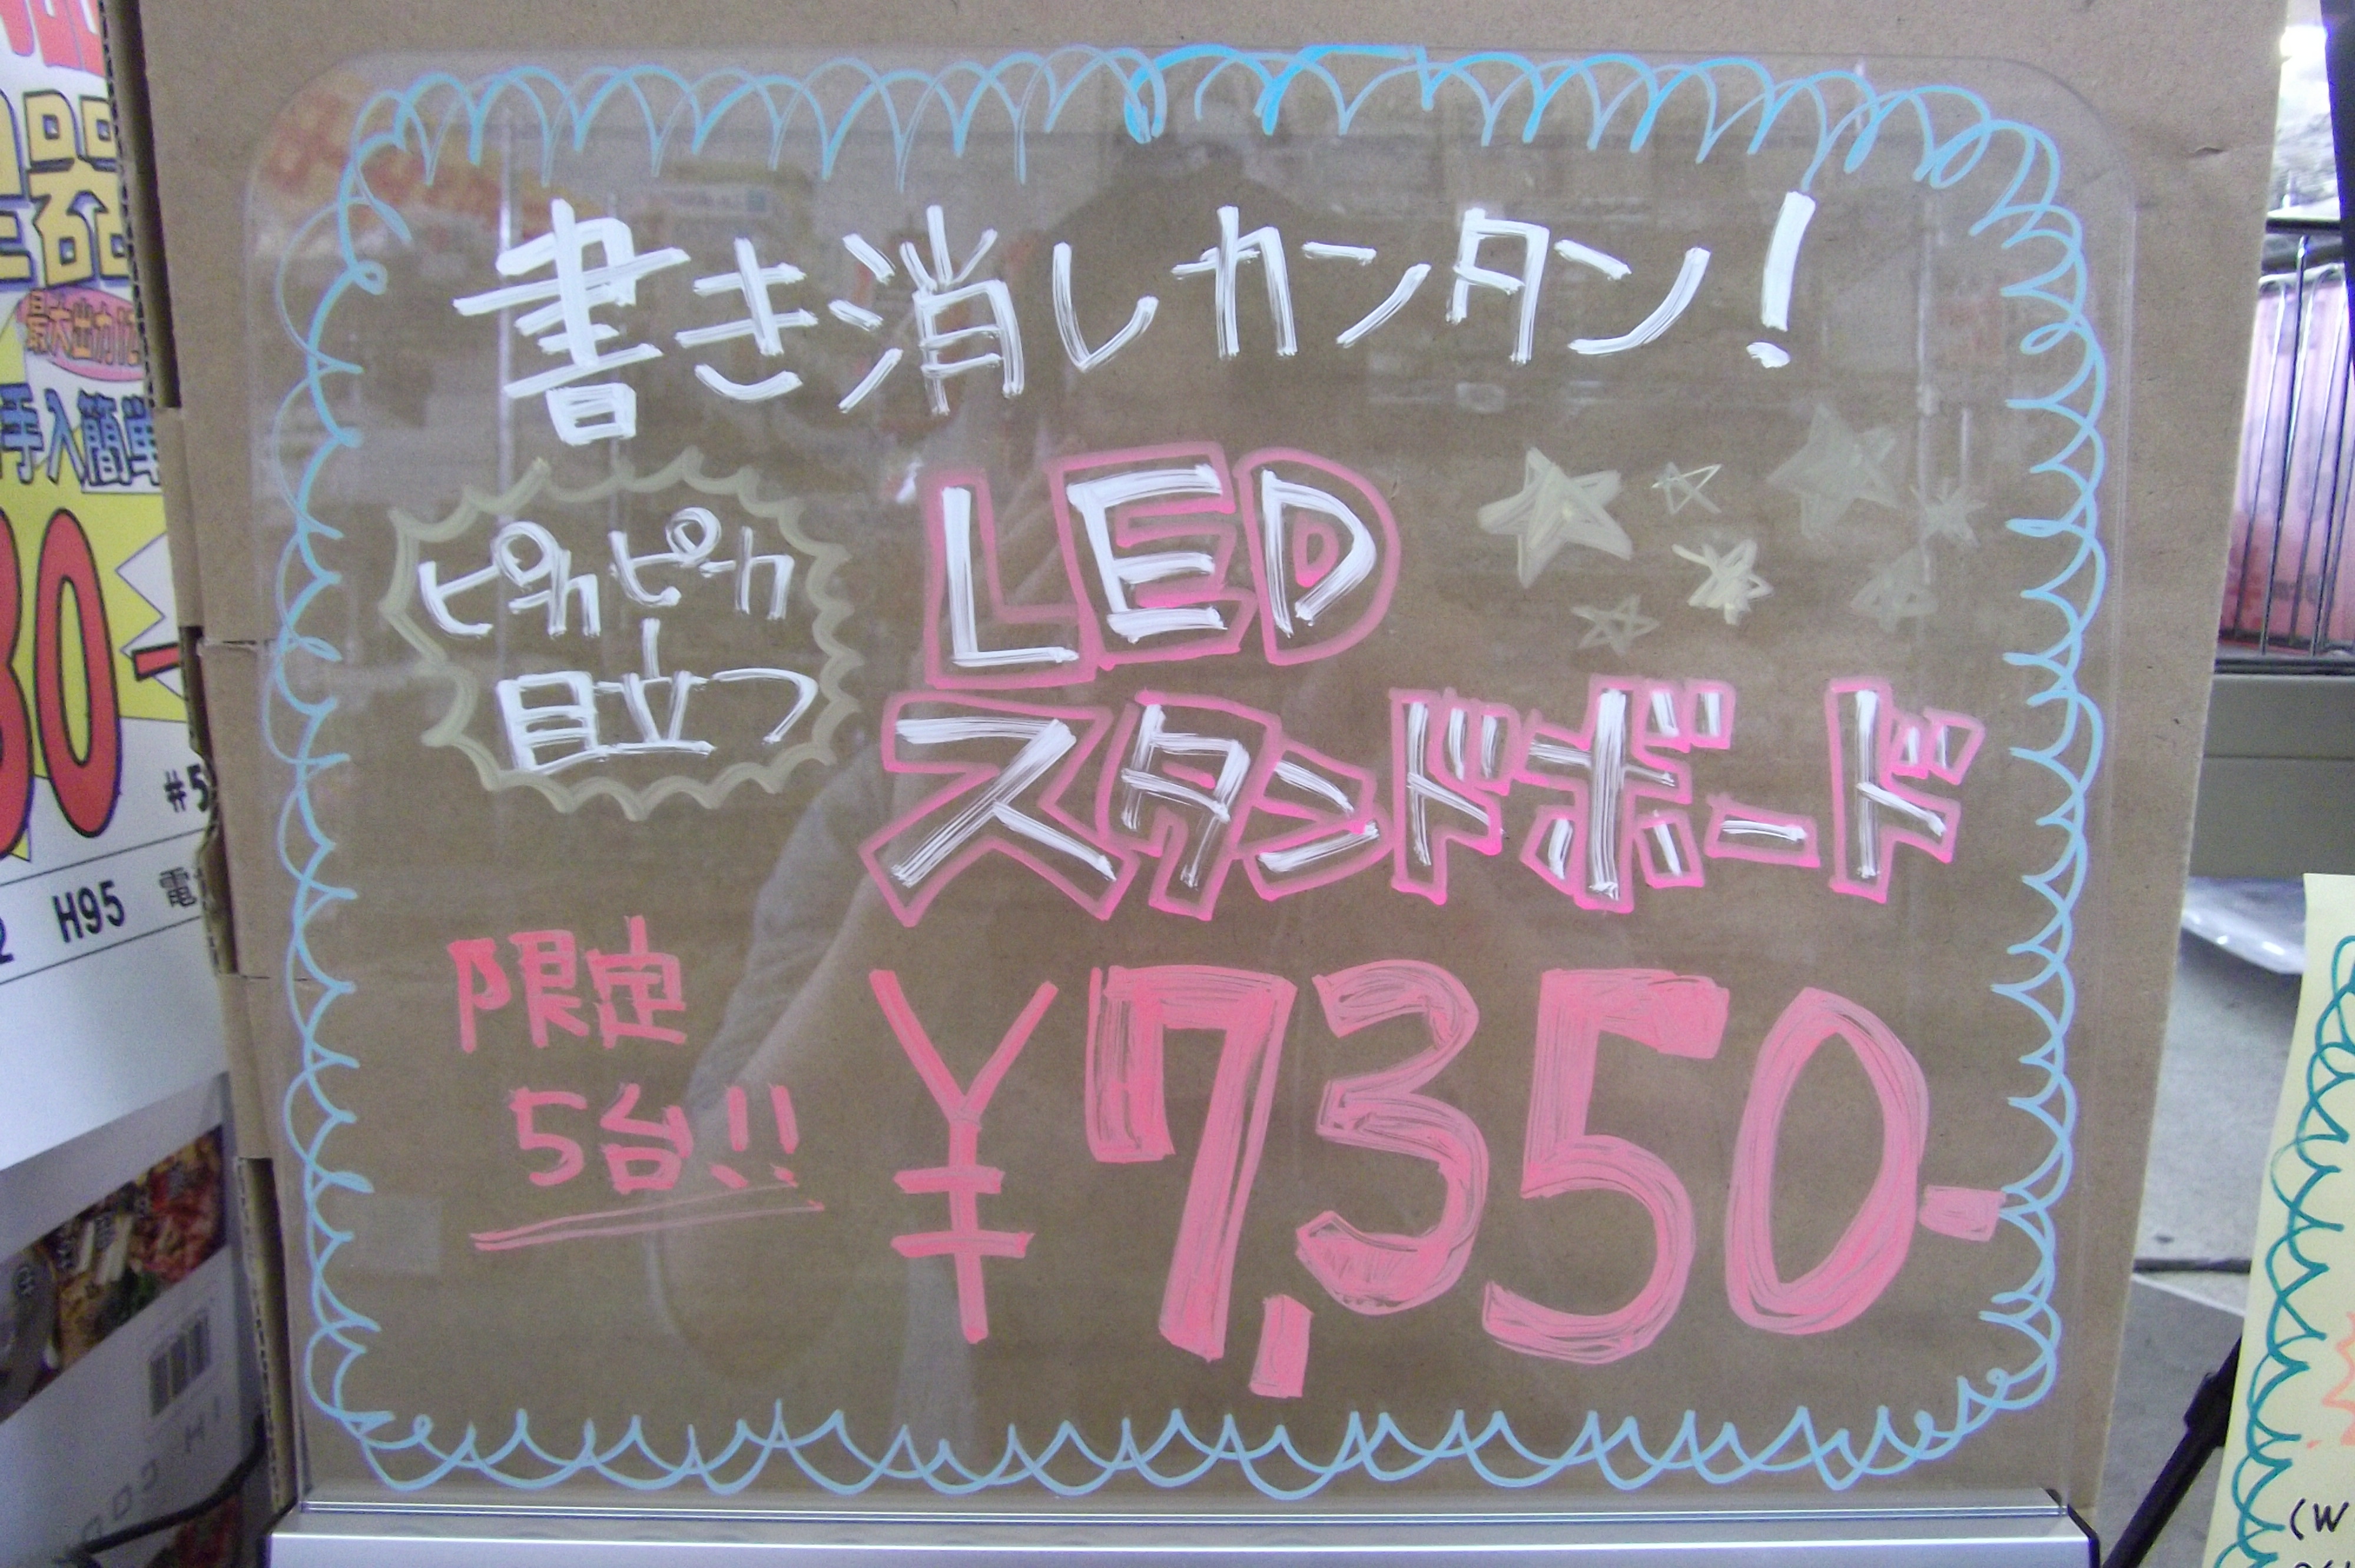 書き消しカンタン!
ピカピカ
目立つ
LED
スタンドボード
限定
5台!!
¥7,350-
最大出力12
手入簡単
80-
#5
H95 電
(W